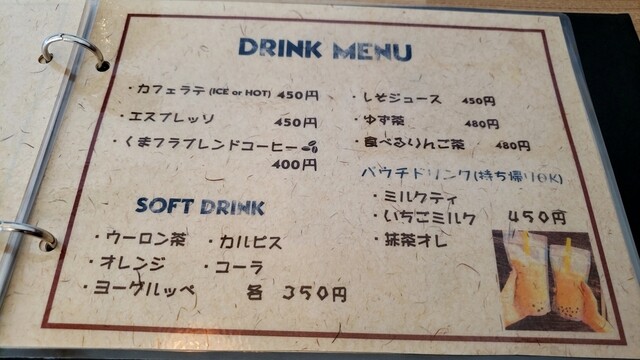 DRINK MENU
・カフェラテ (ICE or HOT) 450円
・エスプレッソ 450円
・くまフラブレンドコーヒー
400円
・しそジュース 450円
・ゆず茶 480円
・食べるりんご茶 480円
パウチドリンク(持ち帰りOK)
・ミルクティ
・いちごミルク 450円
・抹茶オレ
SOFT DRINK
・ウーロン茶 ・カルピス
・オレンジ ・コーラ
・ヨーグルッペ 各 350円